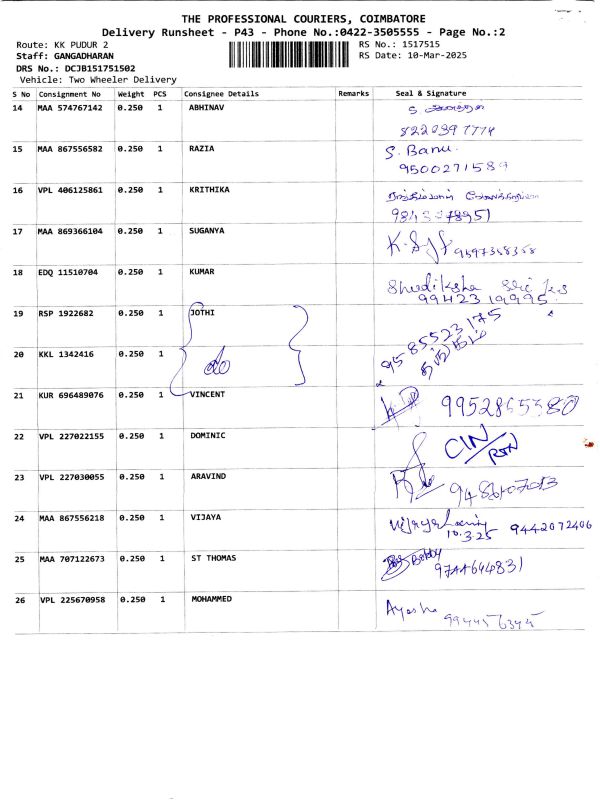 THE PROFESSIONAL COURIERS, COIMBATORE
Delivery Runsheet - P43 - Phone No.:0422-3505555 - Page No.:2
Route: KK PUDUR 2
RS No.: 1517515
Staff: GANGADHARAN
RS Date: 10-Mar-2025
DRS No.: DCJB151751502
Vehicle: Two Wheeler Delivery
S No Consignment No Weight PCS Consignee Details Remarks Seal & Signature
14 MAA 574767142 0.250 1 ABHINAV
15 MAA 867556582 0.250 1 RAZIA S. Banu
9500271589
16 VPL 406125861 0.250 1 KRITHIKA
17 MAA 869366104 0.250 1 SUGANYA 9597358358
18 EDQ 11510704 0.250 1 KUMAR
9942319995
19 RSP 1922682 0.250 1 JOTHI 9585523175
20 KKL 1342416 0.250 1 do
21 KUR 696489076 0.250 1 VINCENT 9952865380
22 VPL 227022155 0.250 1 DOMINIC CIN/
RTN
23 VPL 227030055 0.250 1 ARAVIND
24 MAA 867556218 0.250 1 VIJAYA
10.3.25 9442072406
25 MAA 707122673 0.250 1 ST THOMAS Bobby
9744644831
26 VPL 225670958 0.250 1 MOHAMMED Ayesha